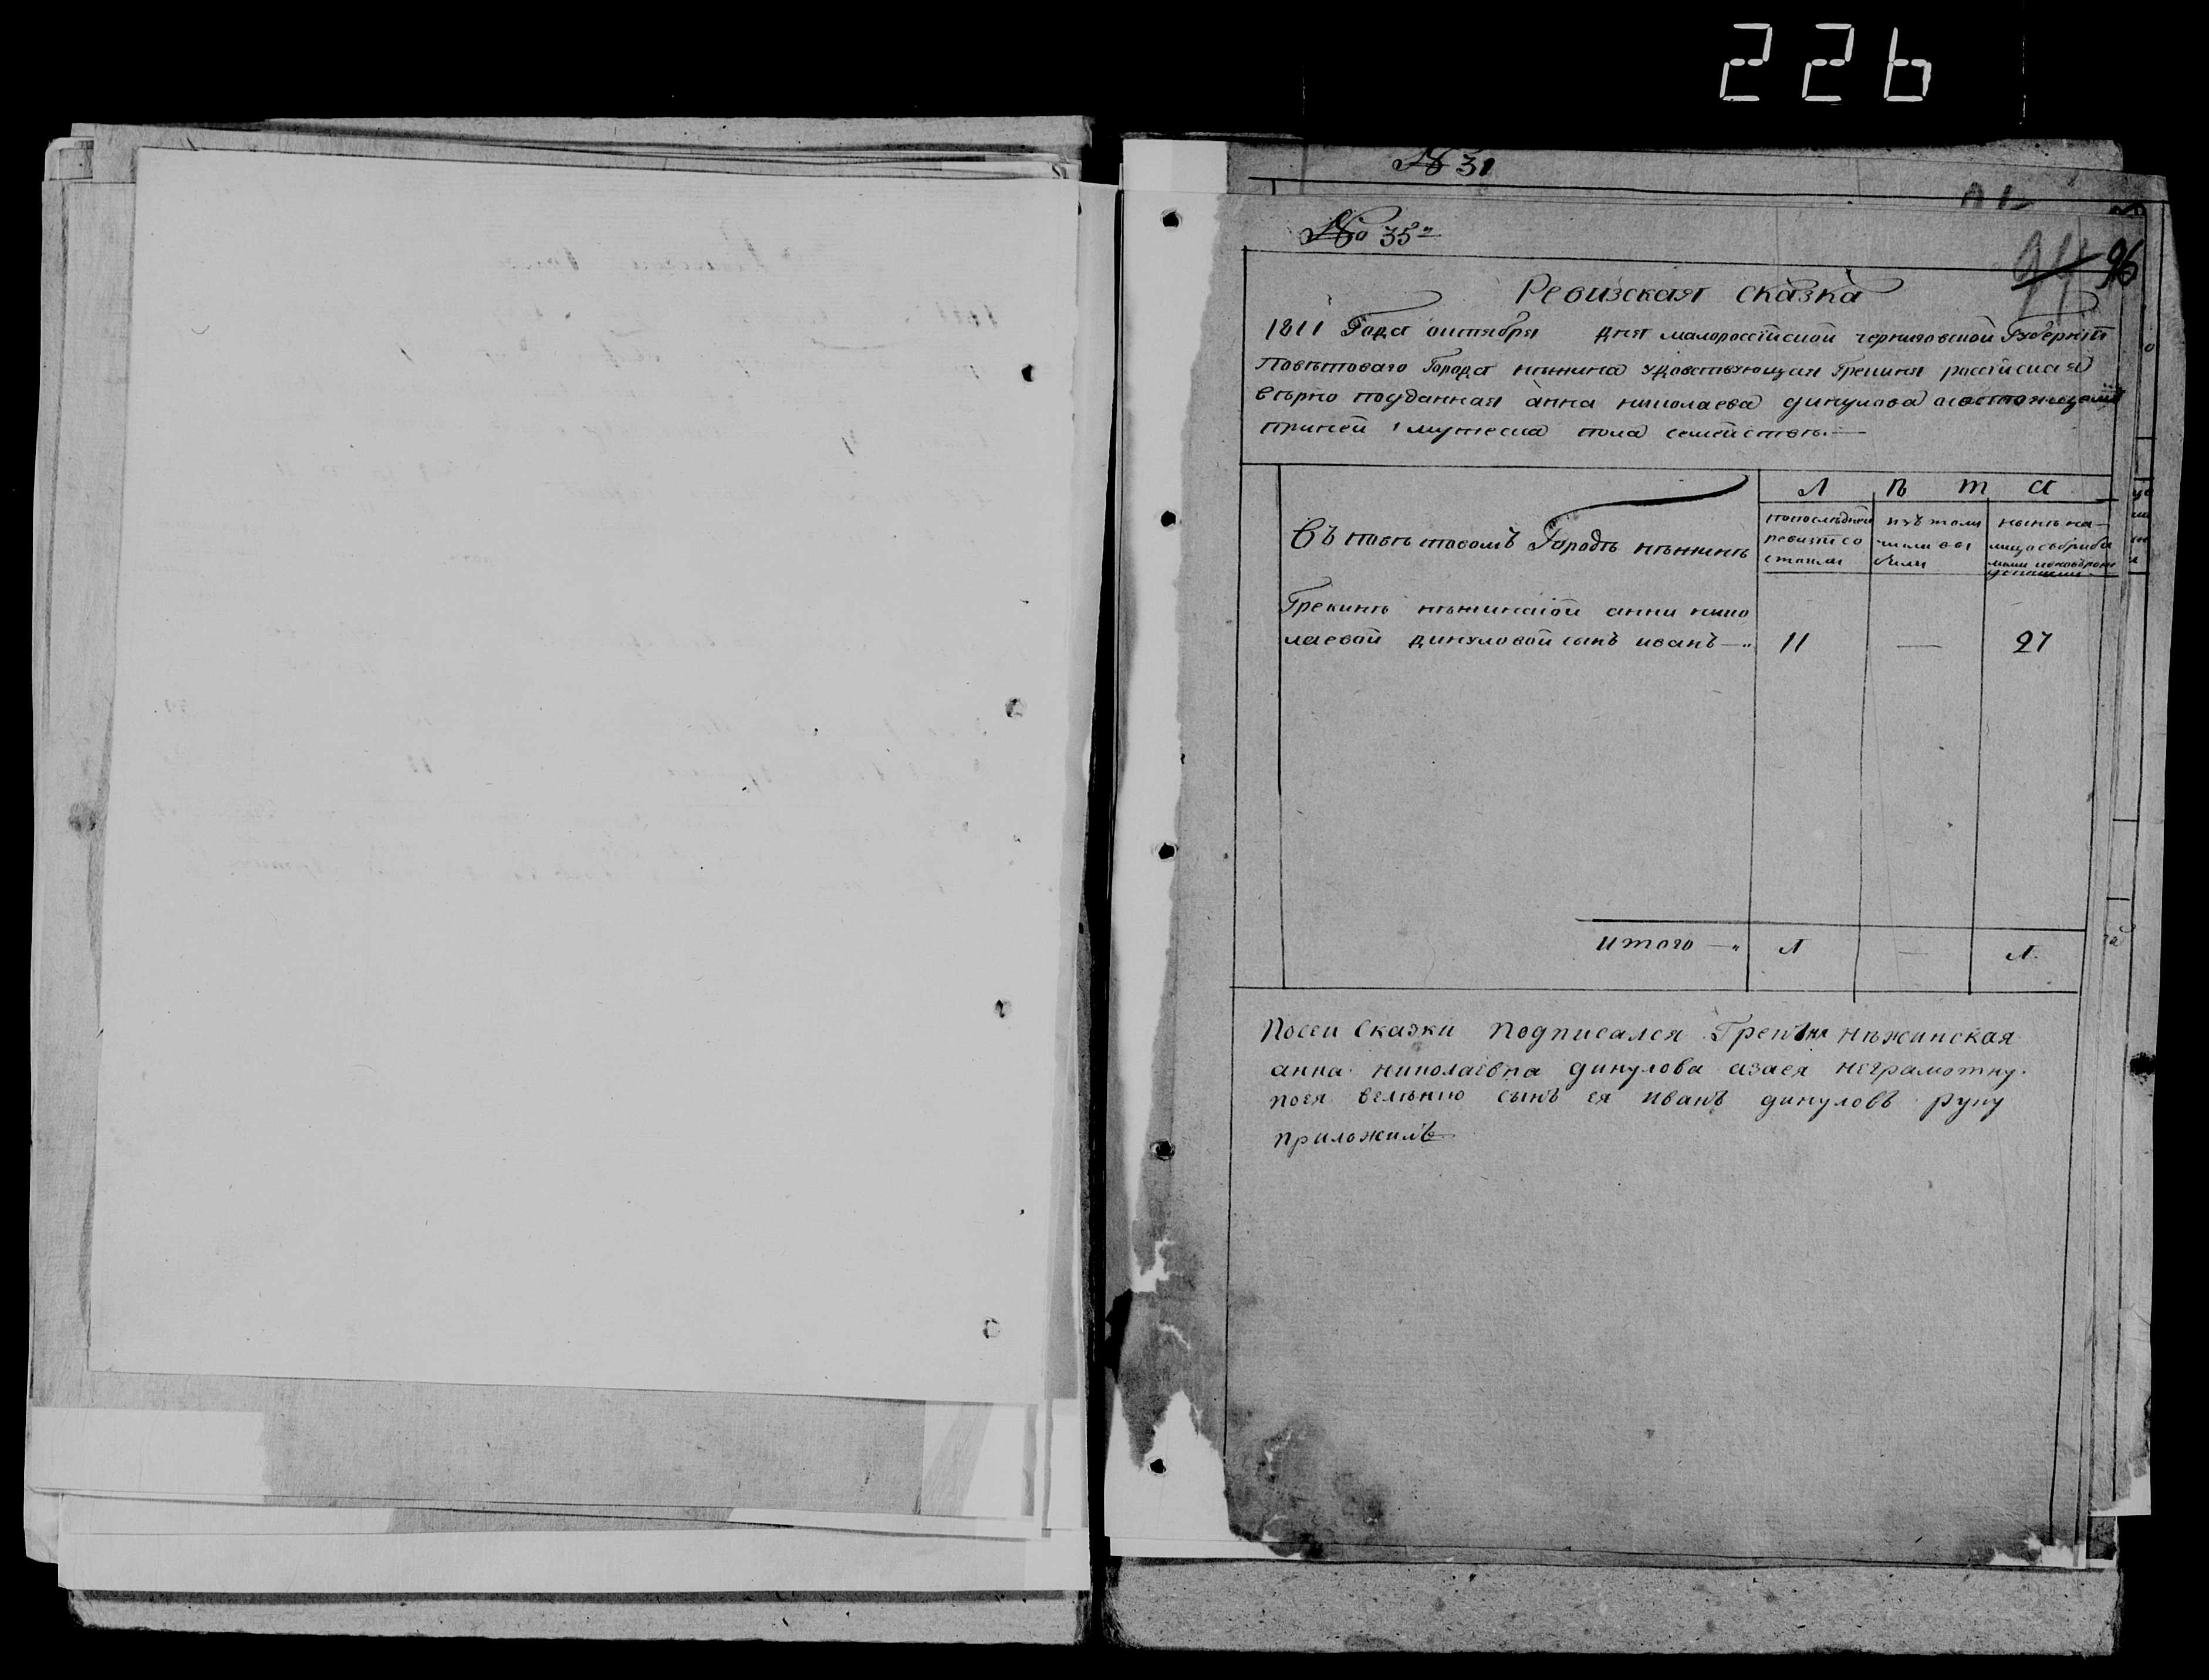 226
№ 31
№ 35
96
Ревизская сказка
1811 Года октября дня малороссїйской черниговской Губернїи
Повѣтоваго Города нѣжина удовствующая Грекиня россїйская
вѣрно подданная анна николаева динулова осостоящемъ
приней мужеска пола семействѣ.—
Въ повѣтовомъ Городѣ нѣжинѣ
Л ѣ т а
попослѣдней ревизїи состояли
изъ того числа выбыли
нынѣ на лицо
Грекинѣ нѣжинской анни нико
лаевой динуловой сынъ иванъ — 11 — 27
итого — 1 — 1
Ксей Сказки подписался Грекиня нѣжинская
анна николаевна динулова азаея неграмотну.
поея велѣнию сынъ ея иванъ динуловъ руку
приложилъ